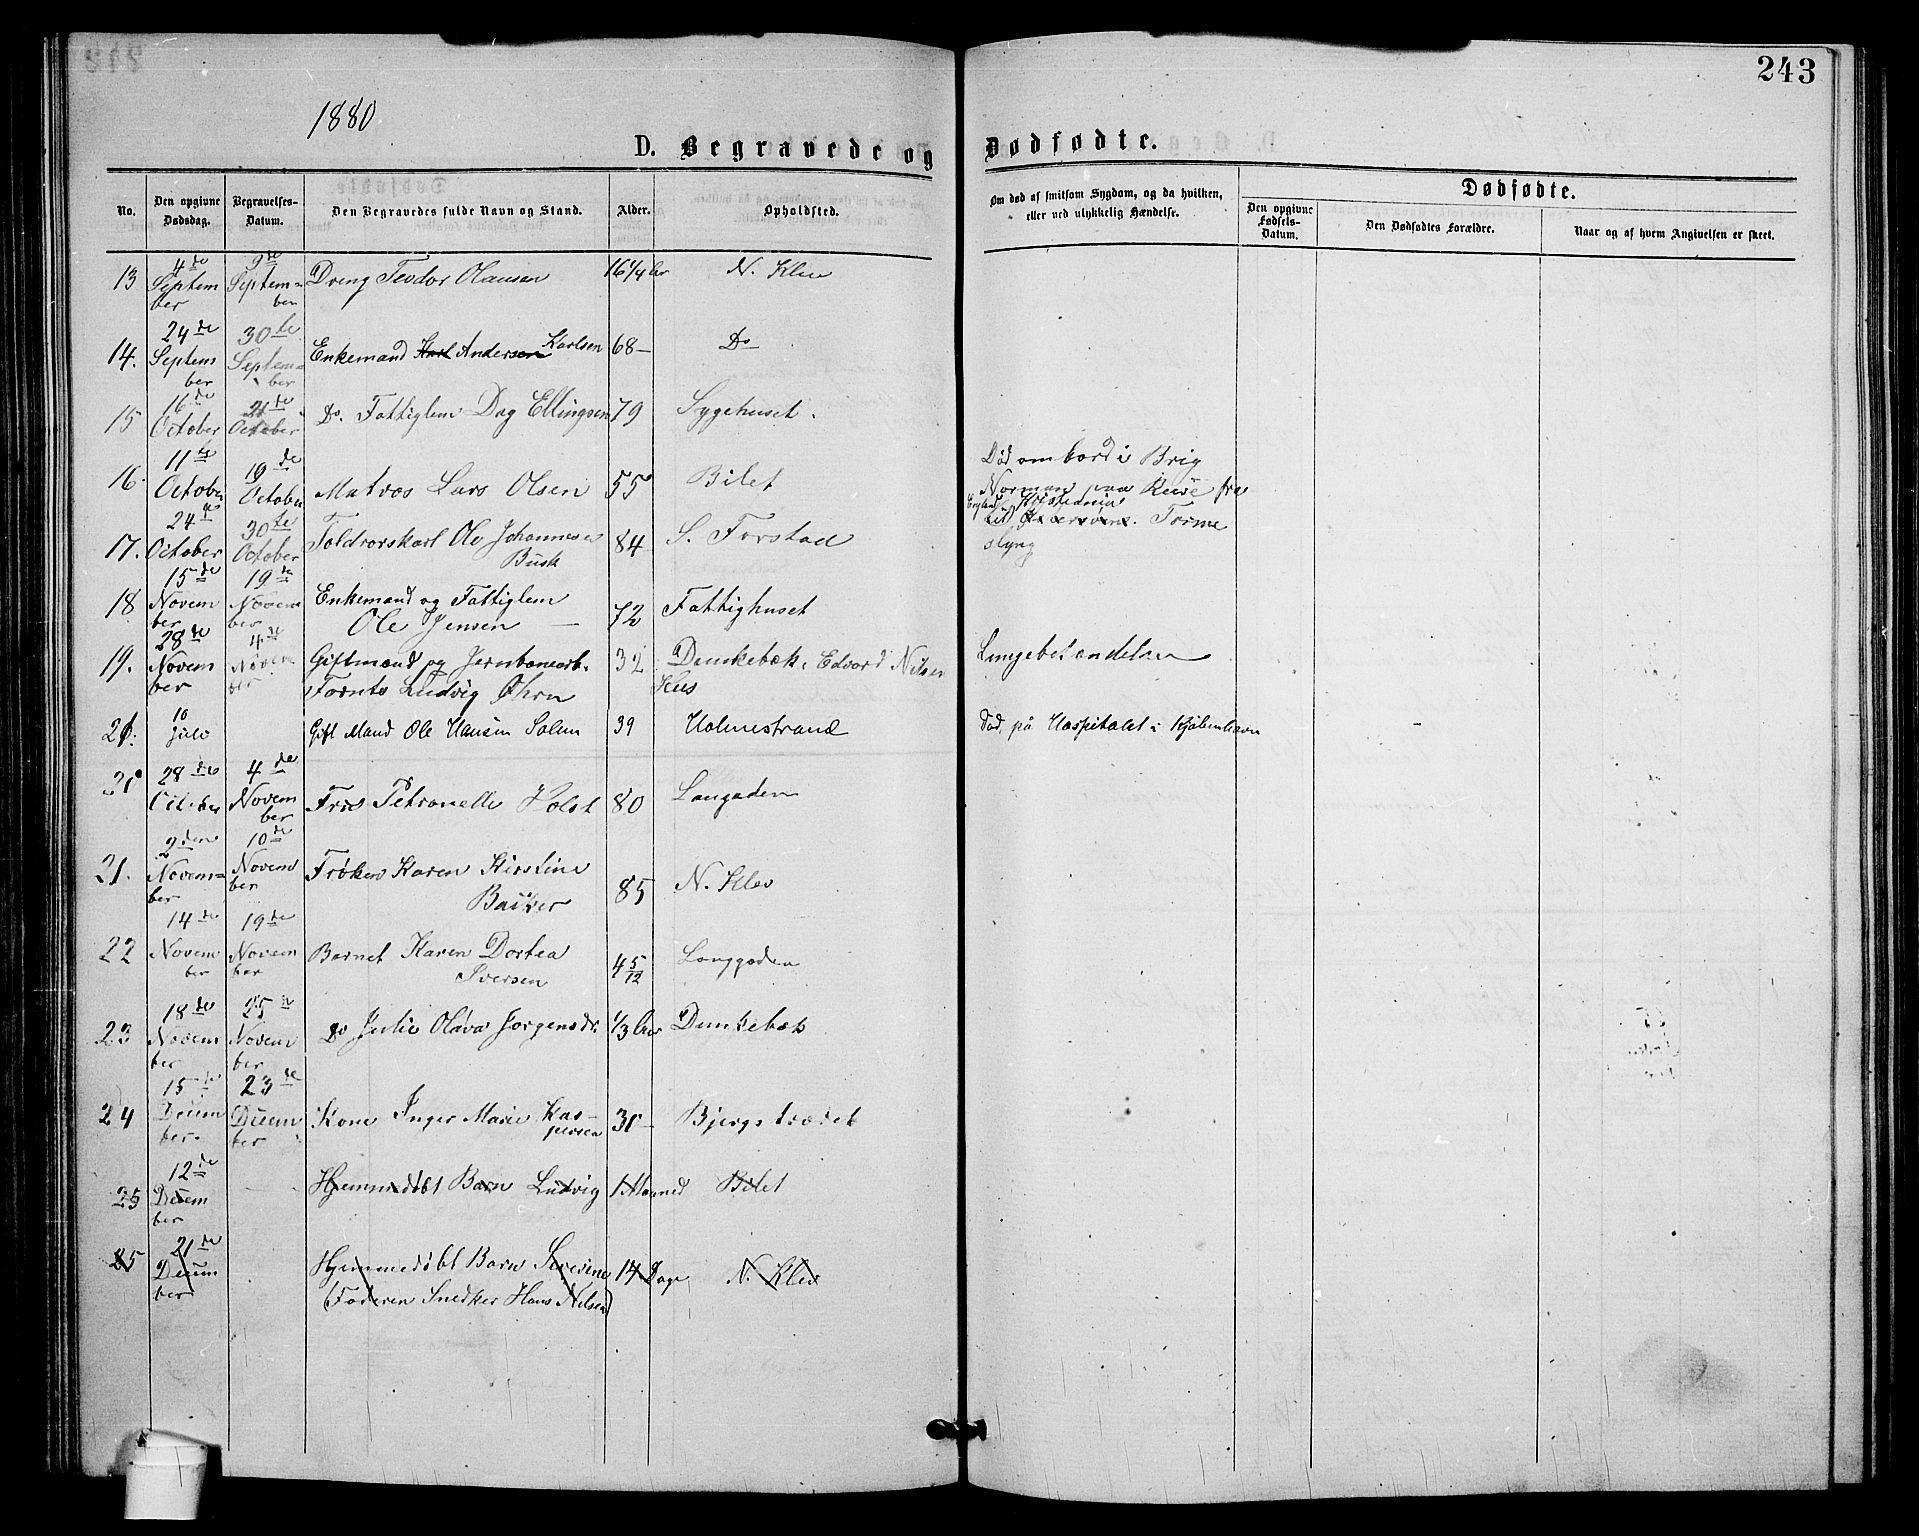 243
1880
D. Begravede og Dødfødte.
No.
Den opgivne Dødsdag.
Begravelses-Datum.
Den Begravedes fulde Navn og Stand.
Alder.
Opholdsted.
Om død af smitsom Sygdom, og da hvilken, eller ved ulykkelig Hændelse.
Dødfødte.
Den opgivne Fødsels-Datum.
Den Dødfødtes Forældre.
Naar og af hvem Angivelsen er skeet.
13 4de September 9de September Dreng Teodor Olausen 16 1/4 Aar N. Klev
14. 24de September 30te September Enkemand Karl Andersen Karlsen 68 - Do
15 16de October 21de October Do. Fattiglem Dag Ellingsen 79 Sygehuset.
16. 11te October 19de October Matros Lars Olsen 55 Bilet Død ombord i Brig
Norman paa Reise fra
England til Kristiania
slyng
17. 24de October 30te October Toldrorskarl Ole Johannesen
Busk 84 - S. Forstad
18 15de November 19de November Enkemand og Fattiglem
Ole Jensen - 72 Fattighuset
19. 28de November 4de November Giftmand og Jernbanearb.
Ludvig Øhrn 32 Dunkebæk, Edvard Nilsen
Hus Lungebetændelse
21. 10 Julv Gift Mand Ole Hansen Solem 39 Holmestrand Død på Hospitalet i Kjøbenhavn
28de October 4de November Petronelle Holst 80 Langgaden
21. 2den November 10de November Frøken Karen Kirstine
85 N. Klev
22 14de November 19de November Barnet Karen Dortea
Iversen 4 5/12 Langgaden
23 18de November 25 November Do Julie Olava Jorgensdr. 1/3 Aar Dunkebæk
24 15de December 23de December Kone Inger Marie Kas-
persen 31 - Bjergstrædet
25 12de December Hjemmedøbt Barn Ludvig 1 Maaned Bilet
25 21de December Hjemmedøbt Barn Severine 14 Dage N. Klev
(Faderen Snedker Hans Nilsen)